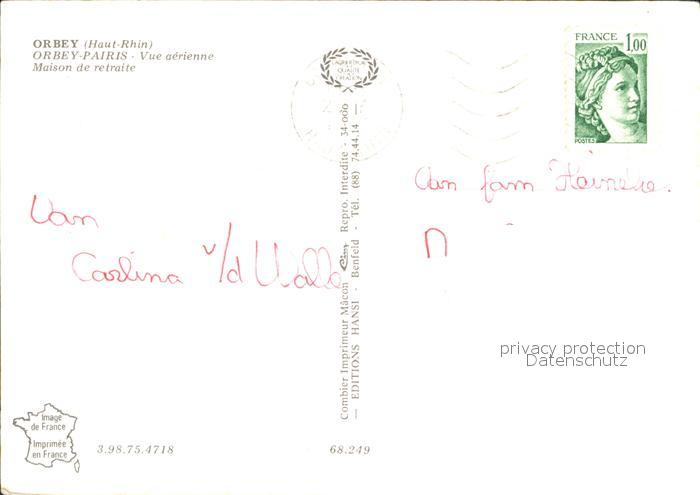 ORBEY (Haut-Rhin)
ORBEY-PAIRIS - Vue aérienne
Maison de retraite
FRANCE 1,00
POSTES
Van
Carlina v/d Walle
Aan fam
privacy protection
Datenschutz
Combier Imprimeur Mâcon Cim Repro. Interdite - 34-000
— EDITIONS HANSI - Benfeld - Tél. (88) 74.44.14 —
Image
de France
Imprimée
en France
3.98.75.4718
68.249